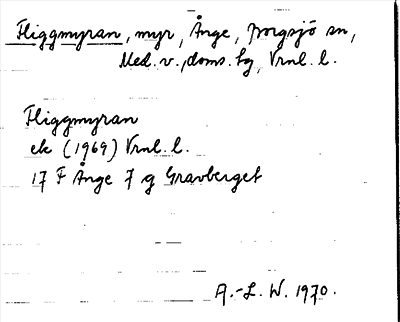 Fliggmyran, myr, Ånge, Borgsjö sn,
Med. v., doms. hg, Vrnl. l.
Fliggmyran
ek (1969) Vrnl. l.
17 F Ånge 7 g Gravberget
A.-L. W. 1970.